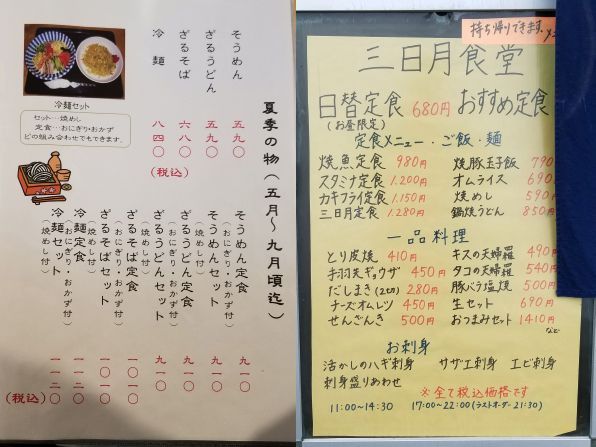 冷麺セット
セット…焼めし
定食…おにぎり・おかず
どの組み合わせでもできます。
夏季の物(五月〜九月頃迄)
そうめん 五九〇
ざるうどん 五九〇
ざるそば 六八〇
冷麺 八四〇
(税込)
そうめん定食 九一〇
(おにぎり・おかず付)
そうめんセット 九一〇
(焼めし付)
ざるうどん定食 九一〇
(おにぎり・おかず付)
ざるうどんセット 九一〇
(焼めし付)
ざるそば定食 一〇一〇
(おにぎり・おかず付)
ざるそばセット 一〇一〇
(焼めし付)
冷麺定食 一一二〇
(おにぎり・おかず付)
冷麺セット 一一二〇
(焼めし付)
(税込)
持ち帰りできます。
三日月食堂
日替定食 680円 おすすめ定食
(お昼限定)
定食メニュー・ご飯・麺
焼魚定食 980円 焼豚玉子飯 790
スタミナ定食 1.200円 オムライス 690
カキフライ定食 1.150円 焼めし 590
三日月定食 1.280円 鍋焼うどん 850円
一品料理
とり皮焼 410円 キスの天婦羅 490
手羽先ギョウザ 450円 タコの天婦羅 540
だしまき(2コ) 280円 豚バラ塩焼 500
チーズオムレツ 450円 生セット 690
せんざんき 500円 おつまみセット 1410円
など
お刺身
活かしのハギ刺身 サザエ刺身 エビ刺身
刺身盛りあわせ
※全て税込価格です
11:00〜14:30 17:00〜22:00(ラストオーダー21:30)